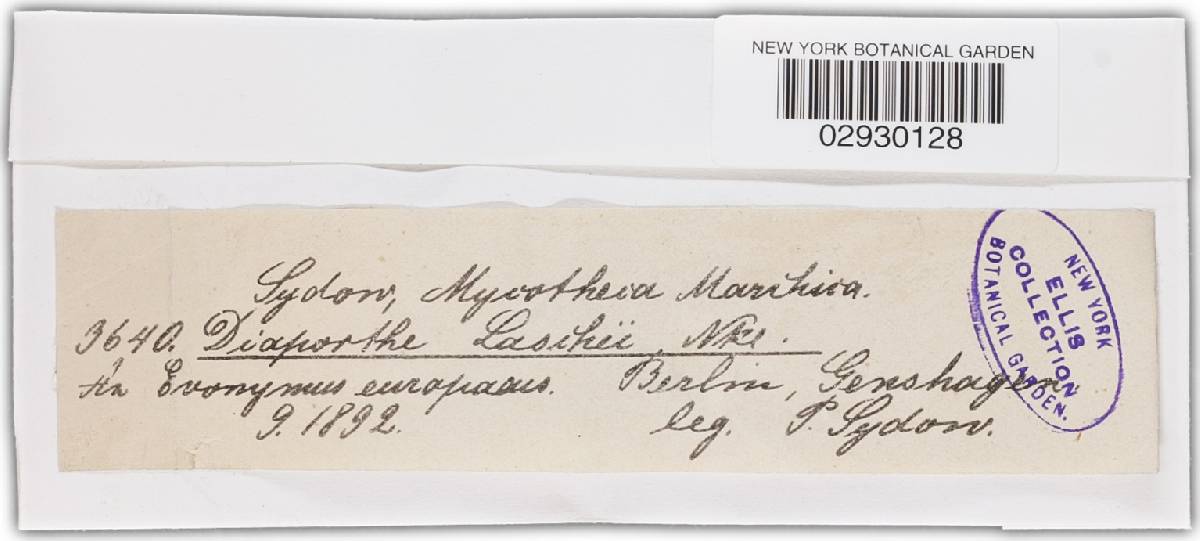 NEW YORK BOTANICAL GARDEN
02930128
Sydow, Mycotheca Marchica.
3640. Diaporthe Laschii Nke.
An Evonymus europaeus. Berlin, Genshagen.
9. 1892. leg. P. Sydow.
NEW YORK
ELLIS
COLLECTION
BOTANICAL GARDEN.